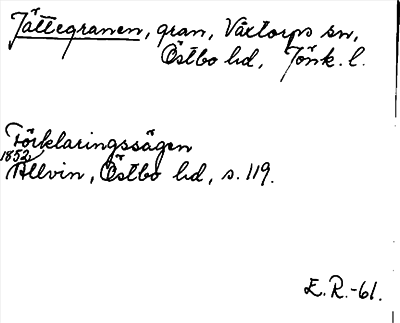 Jättegranen, gran, Växtorps sn,
Östbo hd, Jönk. l.
Förklaringssägen
1852
Allvin, Östbo hd, s. 119.
E. R. -61.